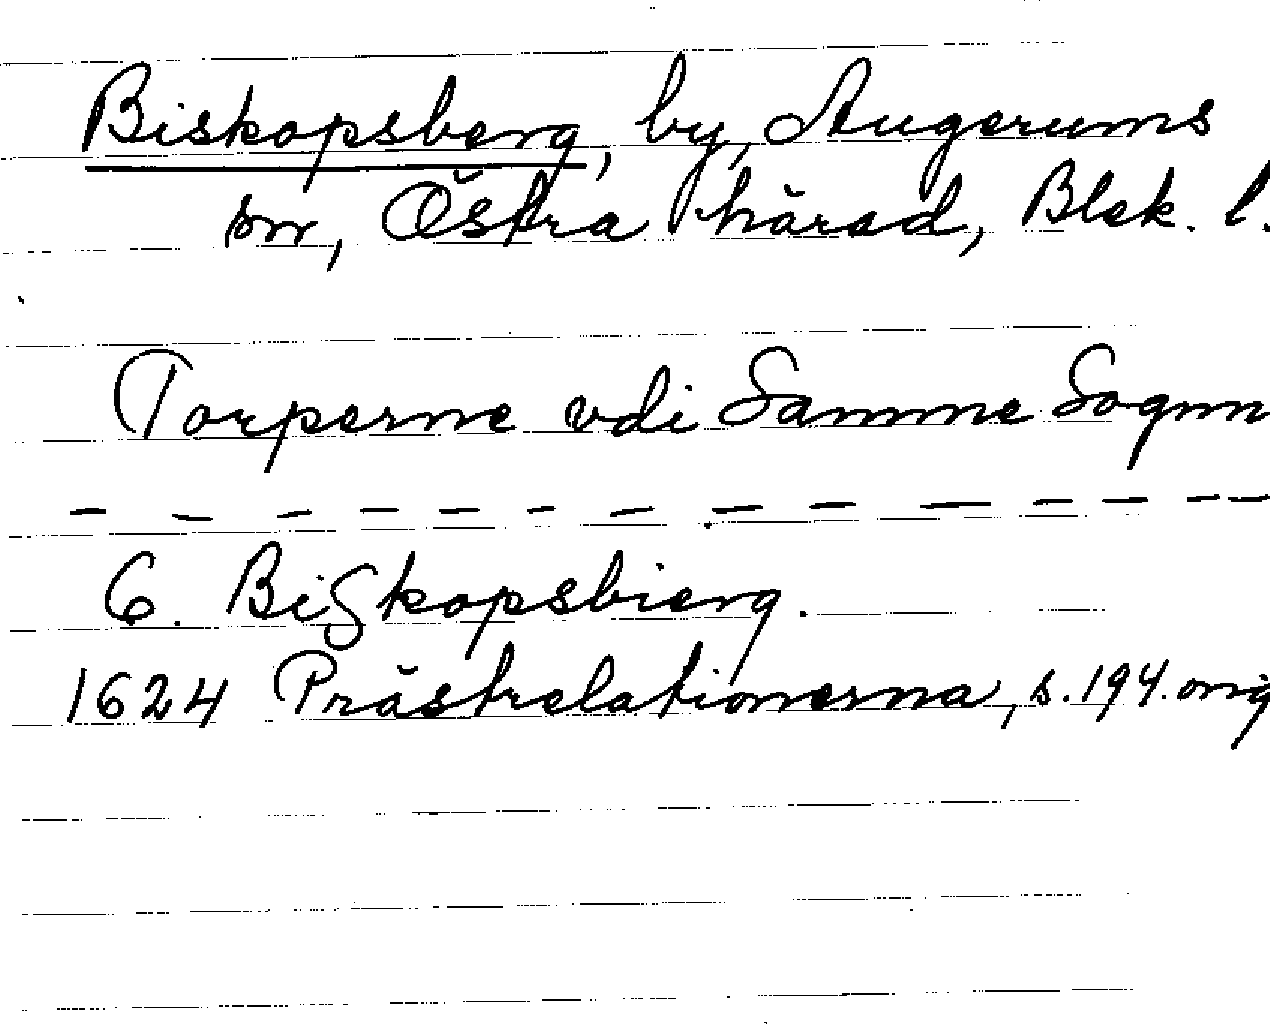 Biskopsberg, by, Augerums
sn, Östra härad, Blek. l.
Torperne vdi Samme Sognn
— — — — — — — — — — — — —
6. Bißkopsbierg.
1624 Prästrelationerna, s. 194. orig